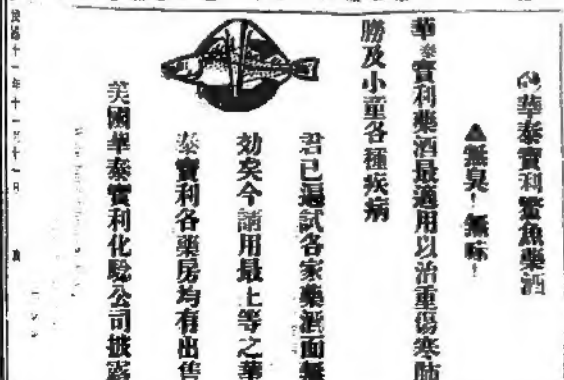 華泰實利鰵魚藥酒
▲無臭！無味！
華泰實利藥酒最適用以治重傷寒肺
勝及小童各種疾病
君已遍試各家藥酒而無
効矣今請用最上等之華
泰實利各藥房均有出售
美國華泰實利化驗公司披露
民國十一年十一月十一日